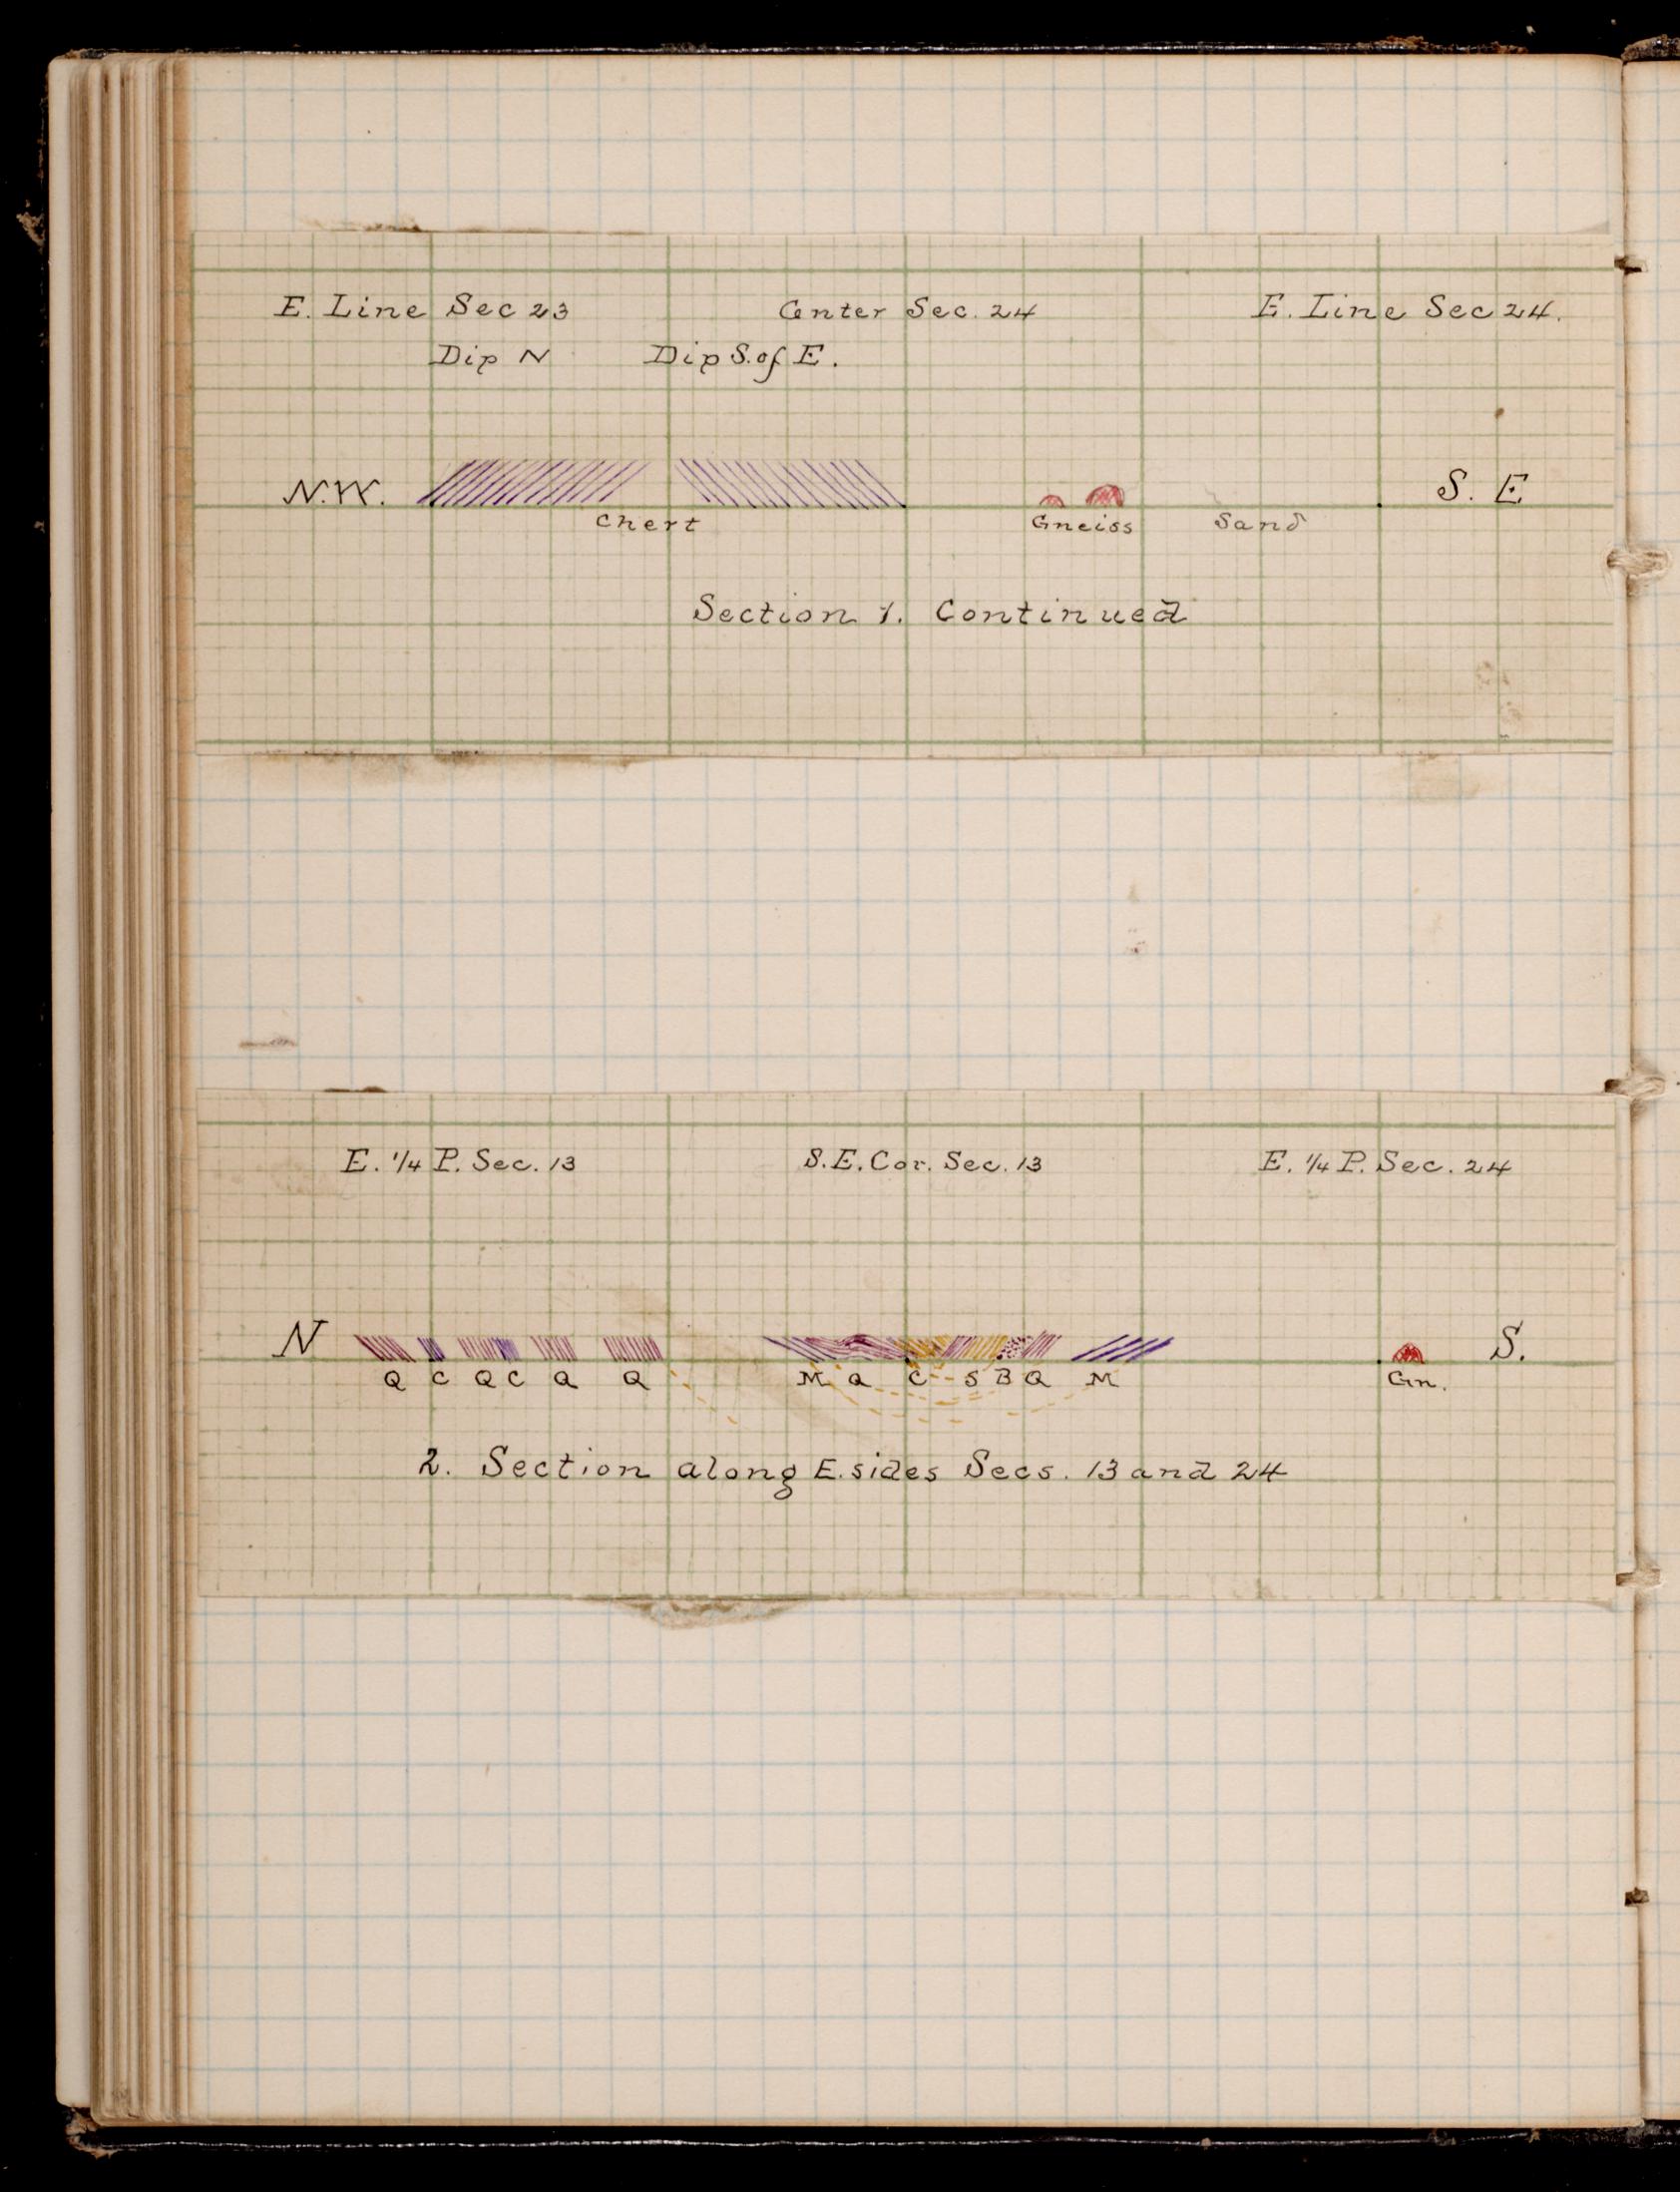 E. Line Sec 23 Center Sec. 24 E. Line Sec 24.
Dip N Dip S. of E.
N.W. S. E
Chert Gneiss Sand
Section 1. Continued
E. 1/4 P. Sec. 13 S.E. Cor. Sec. 13 E. 1/4 P. Sec. 24
N S.
Q C Q C Q Q M Q C S B Q M Gn.
2. Section along E. sides Secs. 13 and 24